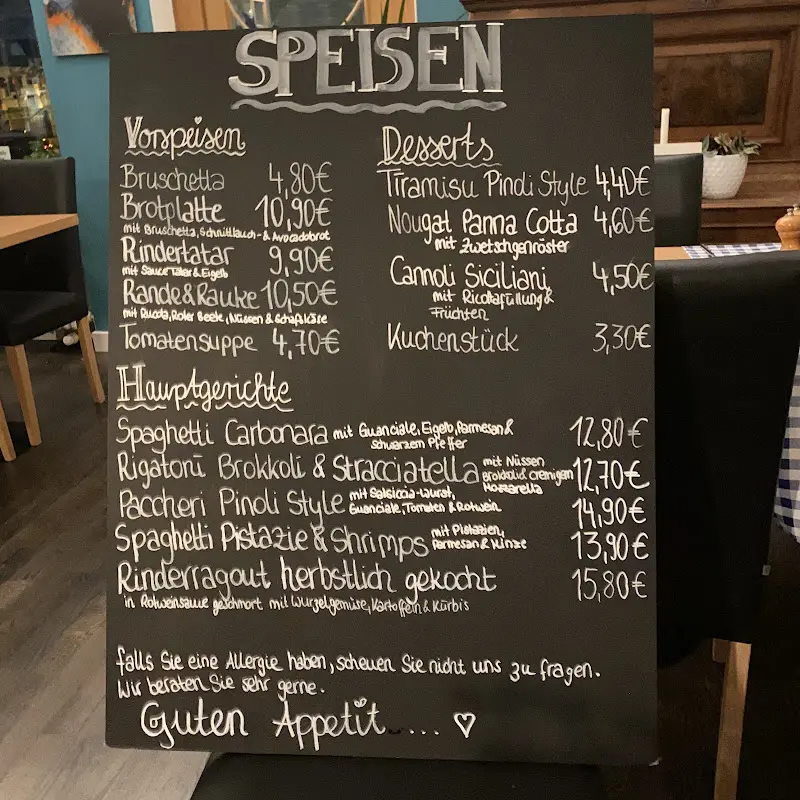 SPEISEN
Vorspeisen
Bruschetta 4,80€
Brotplatte 10,90€
mit Bruschetta, Schnittlauch- & Avocadobrot
Rindertatar 9,90€
mit Sauce Tatar & Eigelb
Rande & Rauke 10,50€
mit Rucola, Roter Beete, Nüssen & Schafskäse
Tomatensuppe 4,70€
Desserts
Tiramisu Pinoli Style 4,40€
Nougat Panna Cotta 4,60€
mit Zwetschgenröster
Cannoli Siciliani 4,50€
mit Ricottafüllung &
Früchten
Kuchenstück 3,30€
Hauptgerichte
Spaghetti Carbonara mit Guanciale, Eigelb, Parmesan & 12,80€
schwarzem Pfeffer
Rigatoni Brokkoli & Stracciatella mit Nüssen 12,70€
Brokkoli & cremigen
Mozzarella
Paccheri Pinoli Style mit Salsiccia-Wurst, 14,90€
Guanciale, Tomaten & Rotwein
Spaghetti Pistazie & Shrimps mit Pistazien, 13,90€
Parmesan & Minze
Rinderragout herbstlich gekocht 15,80€
in Rotweinsauce geschmort mit Wurzelgemüse, Kartoffeln & Kürbis
falls Sie eine Allergie haben, scheuen Sie nicht uns zu fragen.
Wir beraten Sie sehr gerne.
Guten Appetit.... ♡